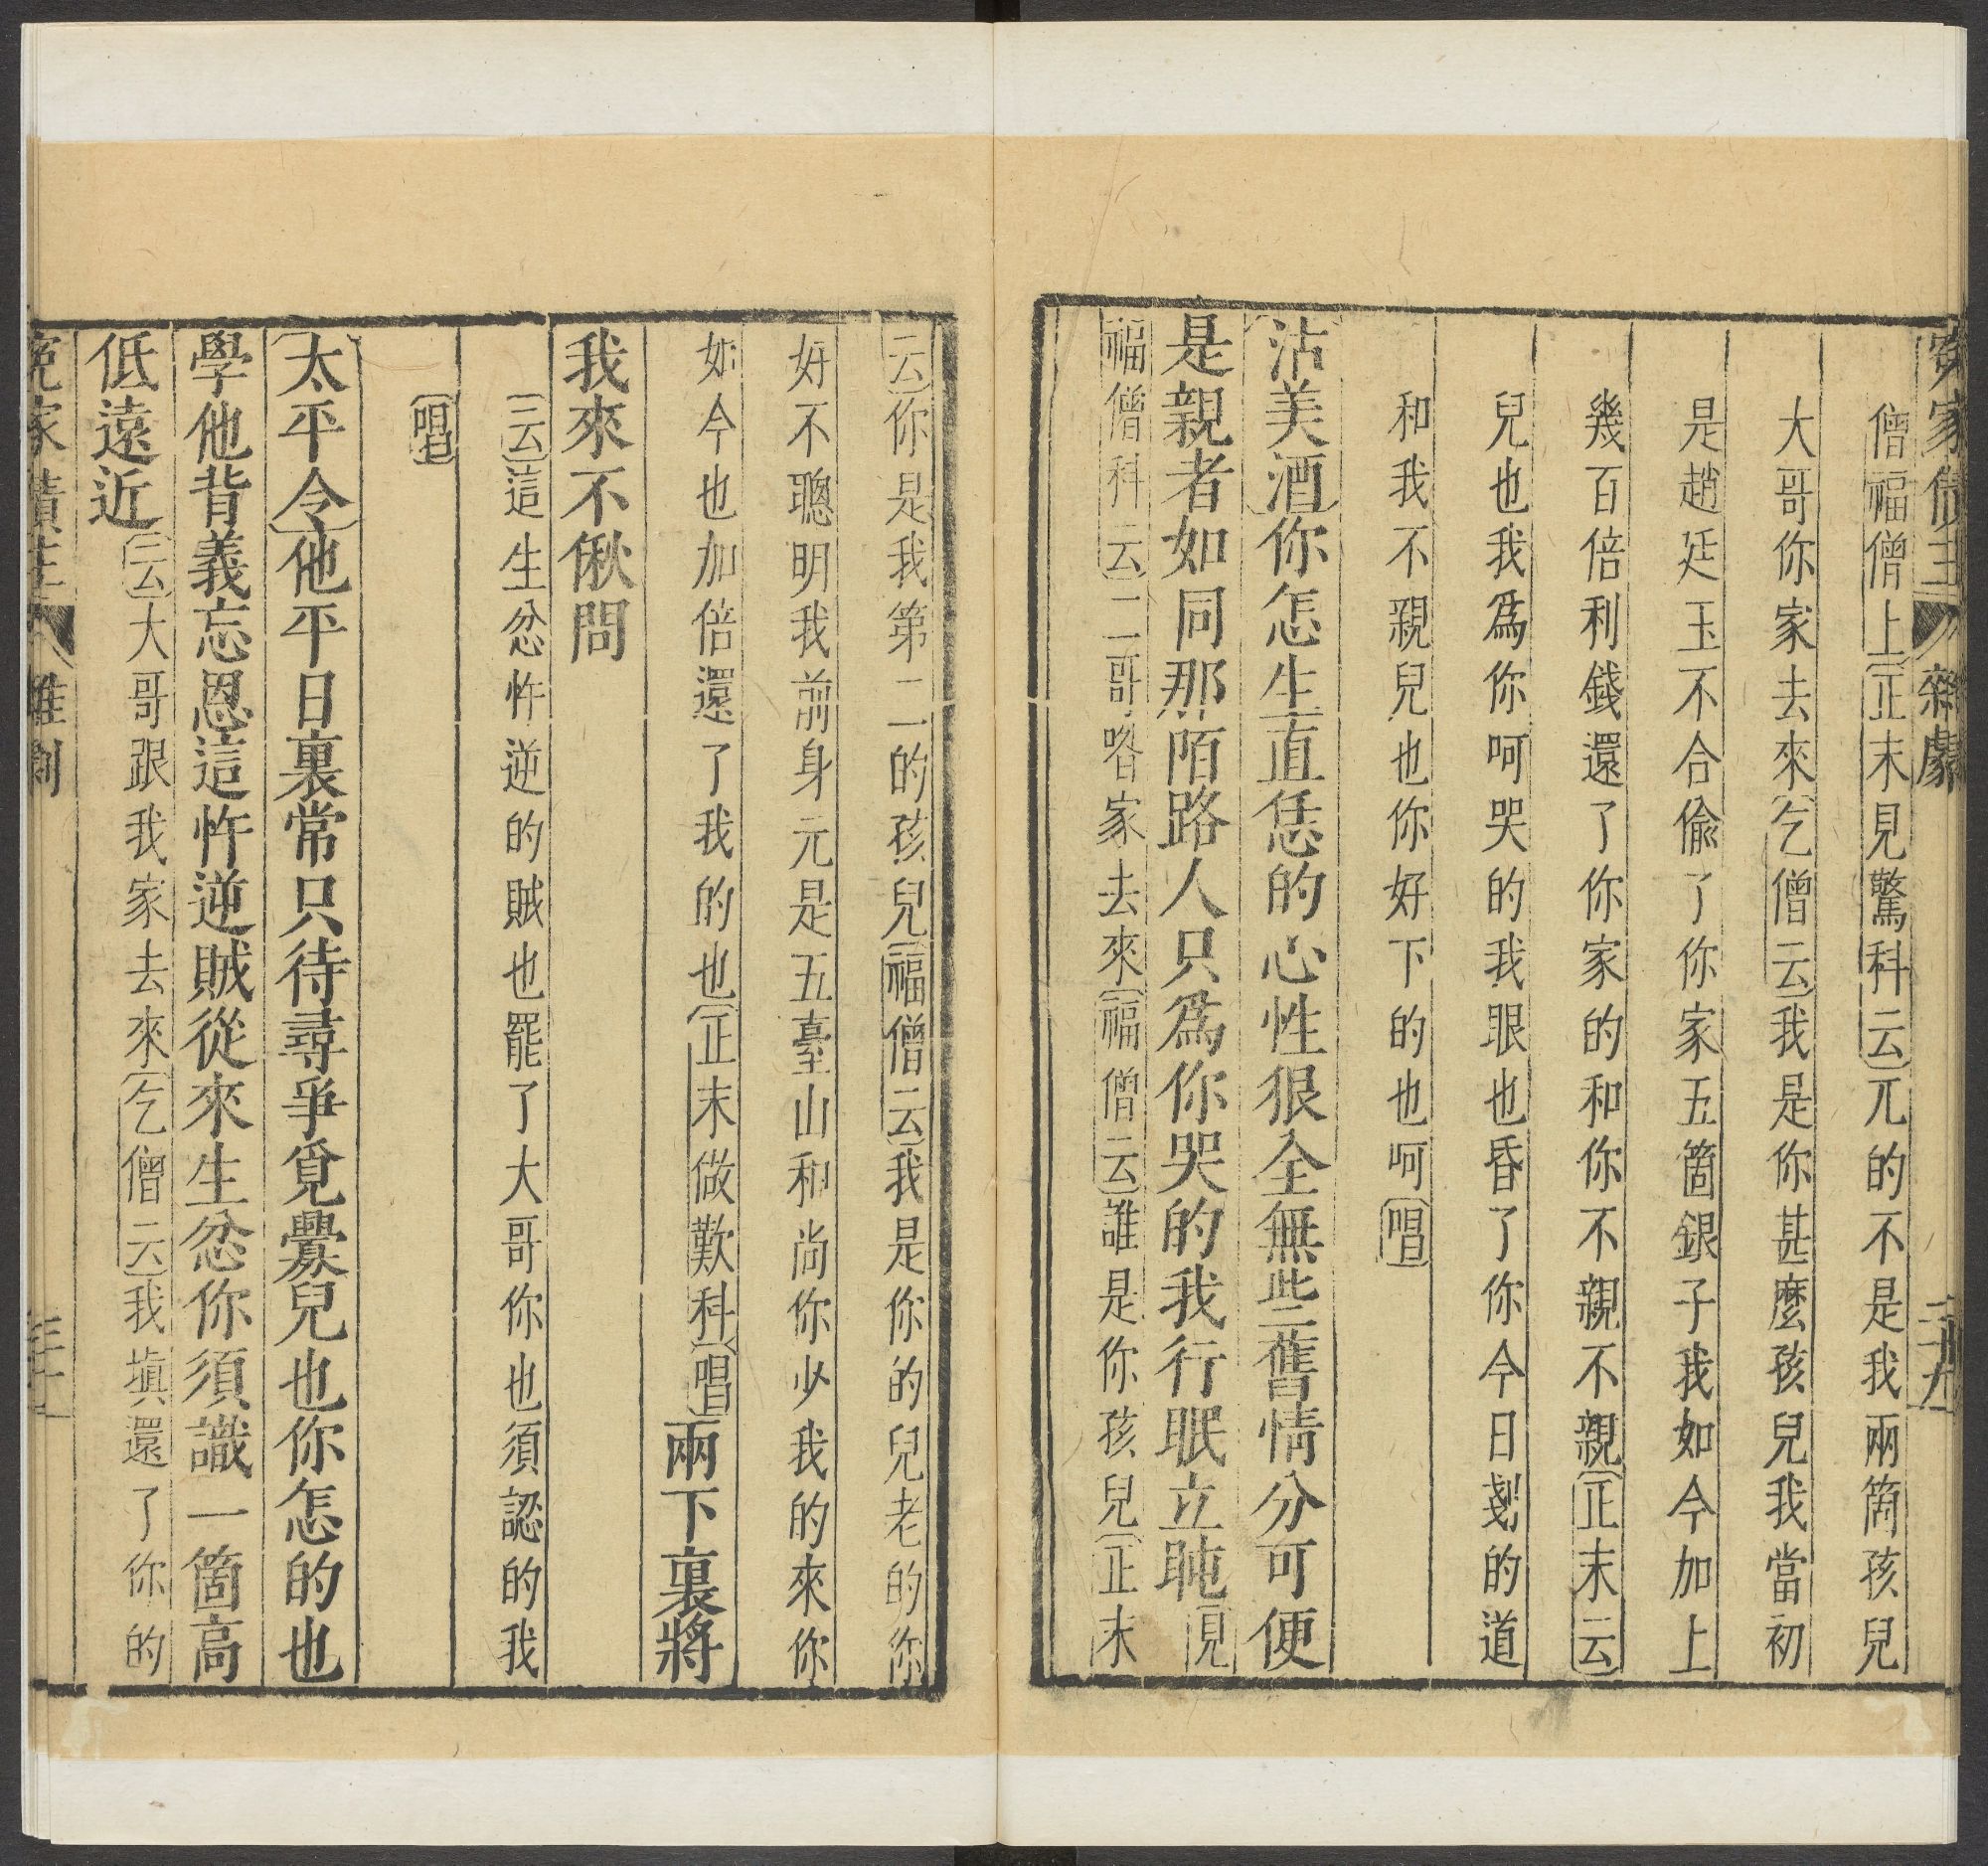 家債主 雜劇 二十九
僧福僧上〔正末見驚科云〕兀的不是我兩箇孩兒
大哥你家去來〔乞僧云〕我是你甚麼孩兒我當初
是趙廷玉不合偷了你家五箇銀子我如今加上
幾百倍利錢還了你家的和你不親不親〔正末云〕
兒也我爲你呵哭的我眼也昏了你今日剗的道
和我不親兒也你好下的也呵〔唱〕
〔沽美酒〕你怎生直恁的心性狠全無些舊情分可便
是親者如同那陌路人只爲你哭的我行眠立盹〔見
福僧科云〕二哥喒家去來〔福僧云〕誰是你孩兒〔正末
云〕你是我第二的孩兒〔福僧云〕我是你的兒老的你
好不聰明我前身元是五臺山和尚你少我的來你
如今也加倍還了我的也〔正末做歎科〕〔唱〕兩下裏將
我來不偢問
〔云〕這生忿忤逆的賊也罷了大哥你也須認的我
〔唱〕
〔太平令〕他平日裏常只待尋爭覓釁兒也你怎的也
學他背義忘恩這忤逆賊從來生忿你須識一箇高
低遠近〔云〕大哥跟我家去來〔乞僧云〕我塡還了你的
冤家債主 雜劇